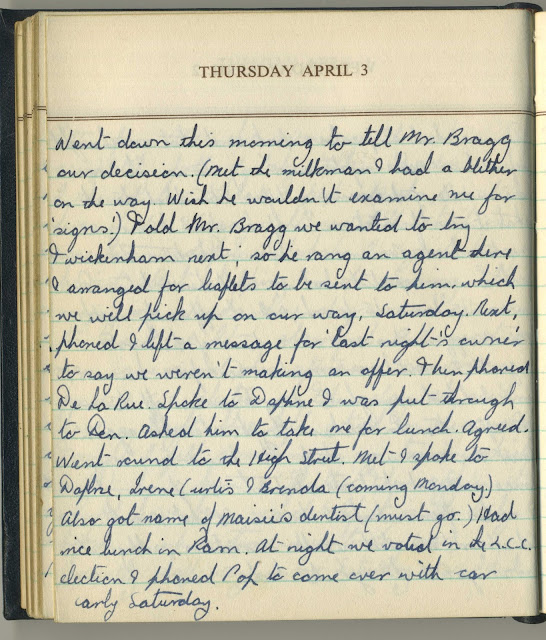 THURSDAY APRIL 3
Went down this morning to tell Mr. Bragg
our decision. (Met the milkman & had a blether
on the way. Wish he wouldn't examine me for
'signs'.) Told Mr. Bragg we wanted to try
Twickenham next, so he rang an agent there
& arranged for leaflets to be sent to him, which
we will pick up on our way, Saturday. Next,
phoned & left a message for 'last night's owner'
to say we weren't making an offer. Then phoned
De La Rue. Spoke to Daphne & was put through
to Den. Asked him to take me for lunch. Agreed.
Went round to the High Street. Met & spoke to
Daphne, Irene Curtis & Brenda (coming Monday.)
Also got name of Maisie's dentist (must go.) Had
nice lunch in Ram. At night we voted in the L.C.C.
election & phoned Pop to come over with car
early Saturday.